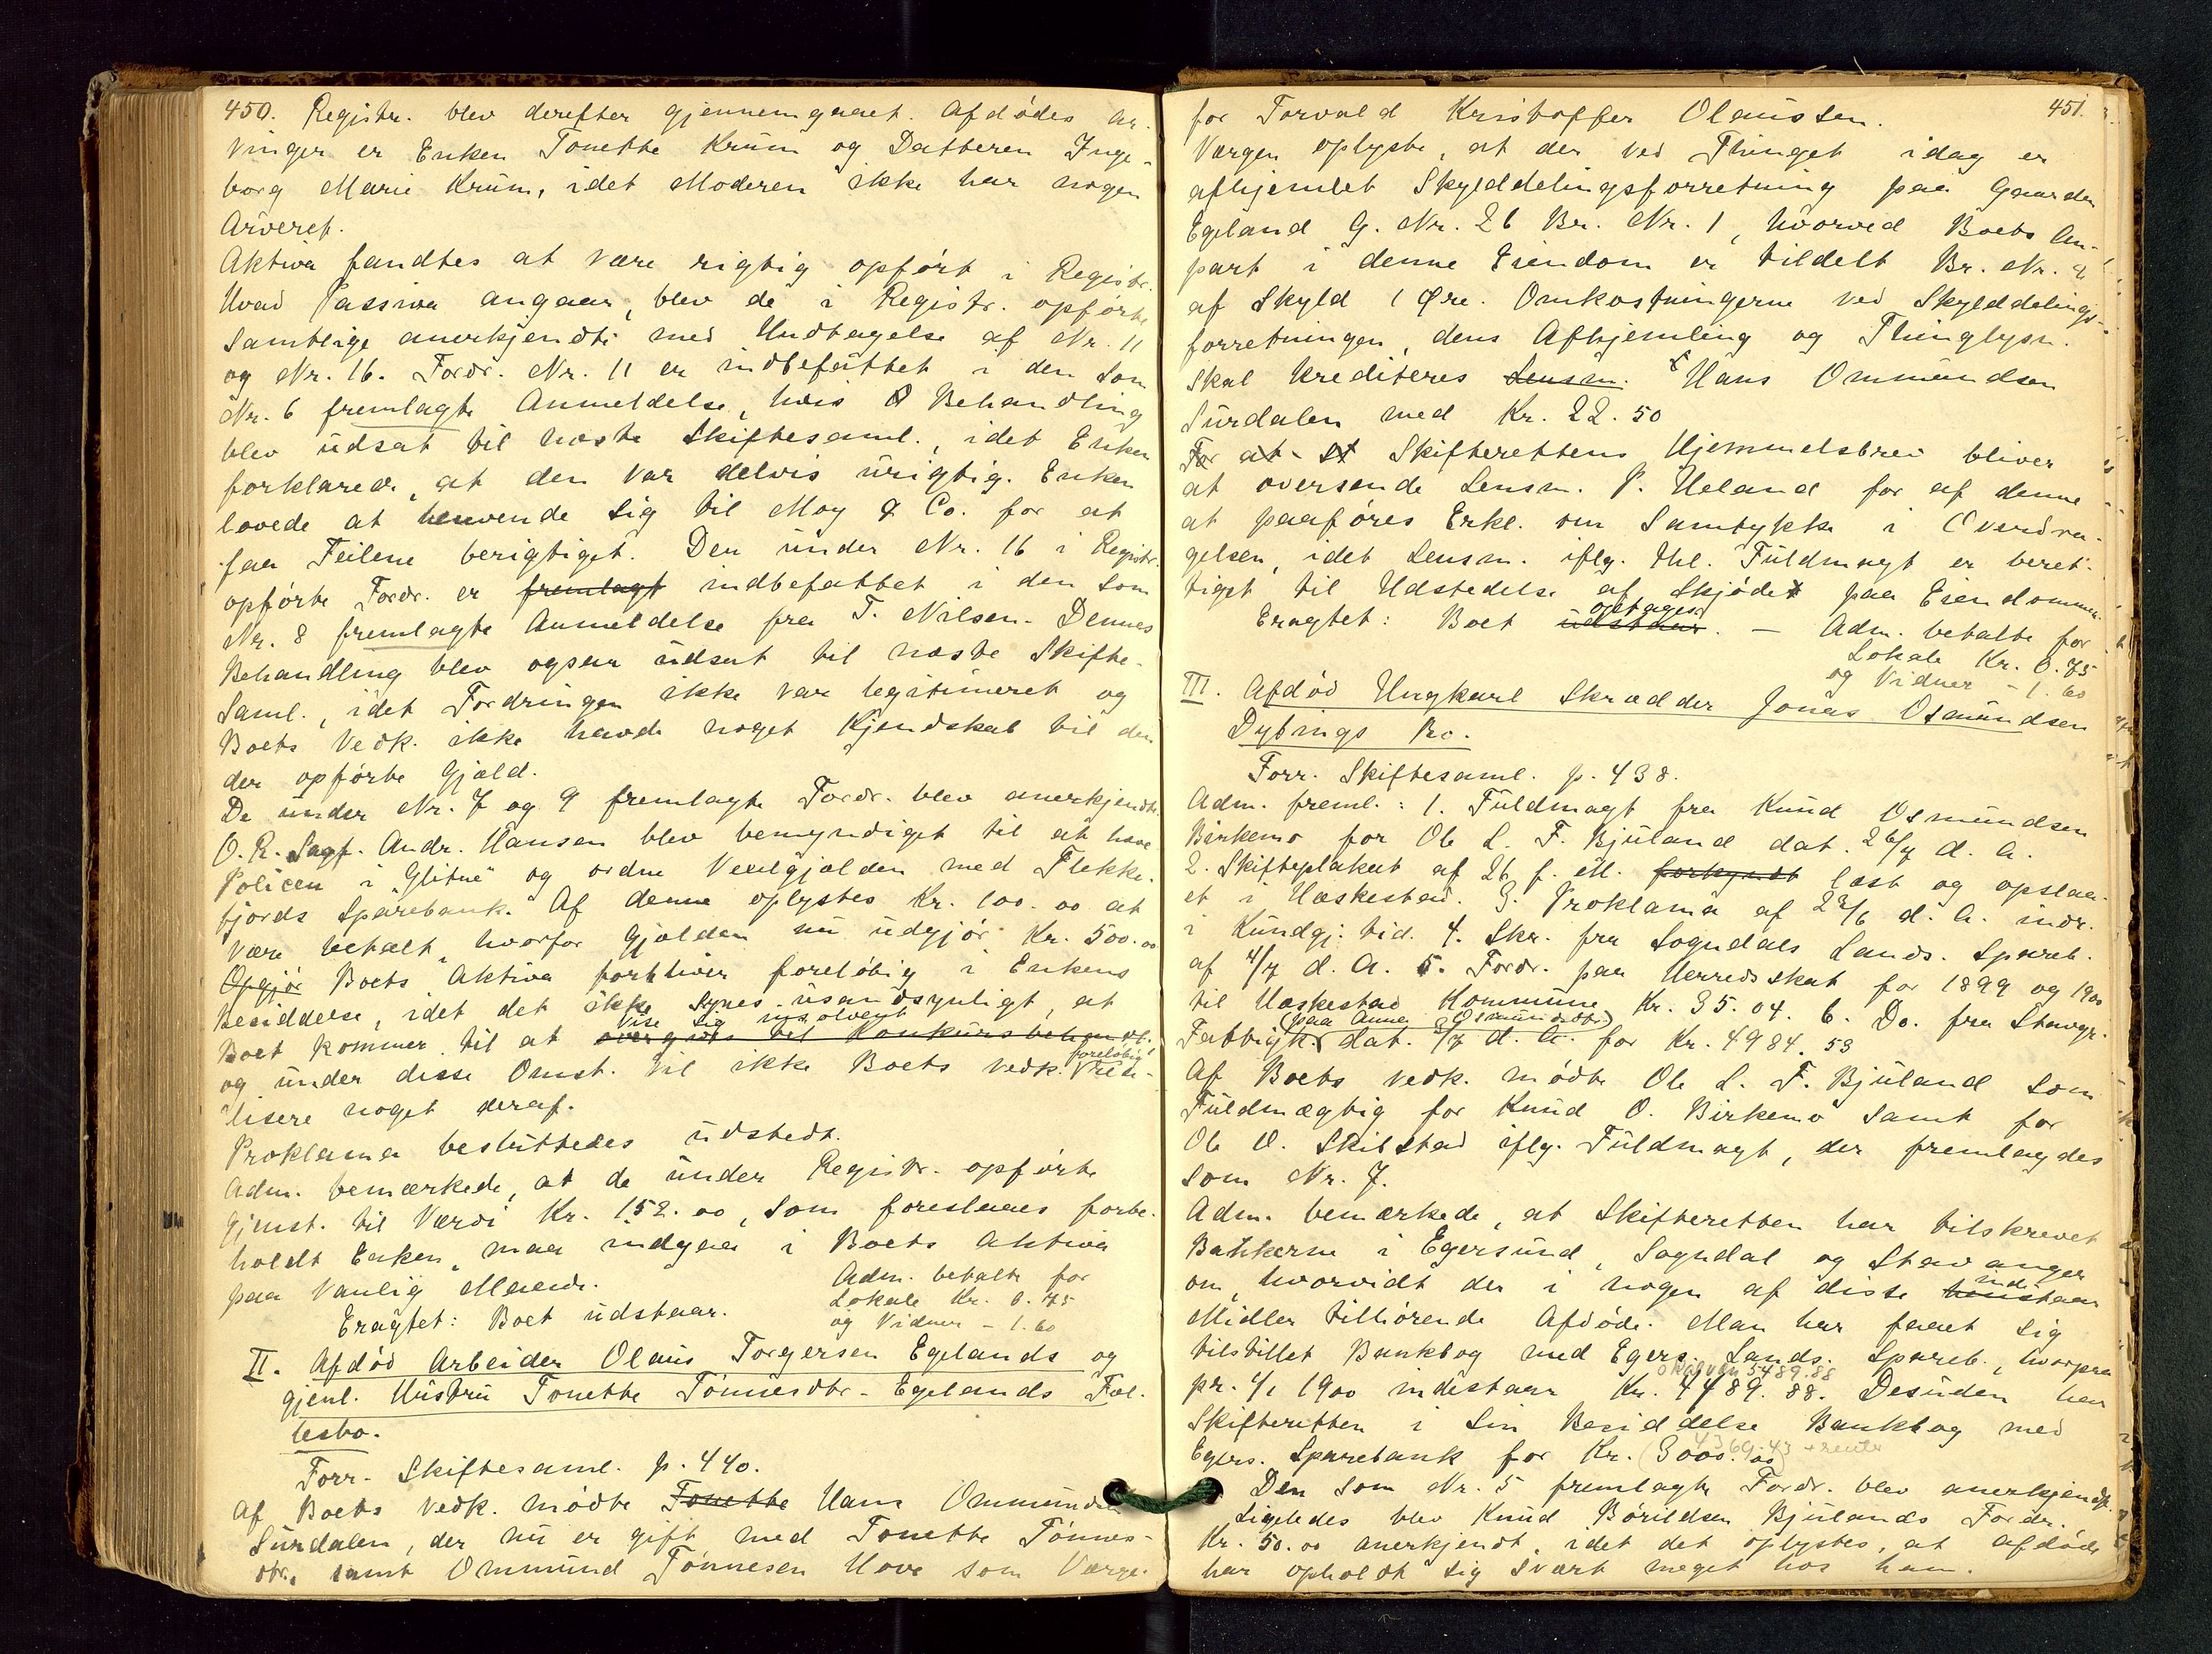 450. Registr. blev derefter gjennemgaaet. Afdødes Ar-
vinger er Enken Tonette Krum og Datteren Inge-
borg Marie Krum, idet Moderen ikke har nogen
Arveret.
Aktiva fandtes at være rigtig opført i Registr.
Hvad Passiva angaar, blev de i Registr. opførte
samtlige anerkjendte med Undtagelse af Nr. 11
og Nr. 16. Fordr. Nr. 11 er indbefattet i den som
Nr. 6 fremlagte Anmeldelse, hvis Behandling
blev udsat til næste Skiftesaml., idet Enken
forklarede, at den var delvis urigtig. Enken
lovede at henvende sig til Moy & Co. for at
faa Feilene berigtiget. Den under Nr. 16 i Registr.
opførte Fordr. er fremlagt indbefattet i den som
Nr. 8 fremlagte Anmeldelse fra T. Nilsen. Dennes
Behandling blev ogsaa udsat til næste Skifte-
saml., idet Fordringen ikke var legitimeret og
Boets Vedk. ikke havde noget Kjendskab til den
der opførte Gjæld.
De under Nr. 7 og 9 fremlagte Fordr. blev anerkjendte.
O. R. Sagf. Andr. Hansen blev bemyndiget til at hæve
Policen i "Glitne" og ordne Vexelgjælden med Flekke-
fjords Sparebank. Af denne oplystes Kr. 100.00 at
være betalt, hvorfor Gjælden nu udgjør Kr. 500.00
Opgjør Boets Aktiva forbliver foreløbig i Enkens
Besiddelse, idet det ikke synes usandsynligt, at
vise sig insolvent
Boet kommer til at overgaa til Konkursbehandl.
og under disse Omst. vil ikke Boets Vedk. foreløbig rea-
lisere noget deraf.
Proklama besluttedes udstedt.
Adm. bemærkede, at de under Registr. opførte
Gjenst. til Værdi Kr. 152.00, som foreslaaes forbe-
holdt Enken, maa indgaa i Boets Aktiva
paa vanlig Maade.
Adm. betalte for
Lokale Kr. 0.75
og Vidner - 1.60
Eragtet: Boet udstaar.
II. Afdød Arbeider Olaus Torgersen Egelands og
gjenl. Hustru Tonette Tønnesdtr. Egelands Fæl-
lesbo.
Forr. Skiftesaml. p. 440.
Af Boets Vedk. mødte Tonette Hans Ommundsen
Surdalen, der nu er gift med Tonette Tønnes-
dtr. samt Ommund Tønnesen Hove som Værge
451.
for Torvald Kristoffer Olaussen.
Værgen oplyste, at der ved Thinget idag er
afhjemlet Skylddelingsforretning paa Gaarden
Egeland G. Nr. 26 Br. Nr. 1, hvorved Boets An-
part i denne Eiendom er tildelt Br. Nr. 4
af Skyld 1 Øre. Omkostningerne ved Skylddelings-
forretningen, dens Afhjemling og Thinglysn.
skal krediteres Lensm. Hans Ommundsen
Surdalen med Kr. 22.50
For at Skifterettens Hjemmelsbrev bliver
at oversende Lensm. P. Ueland for af denne
at paaføres Erkl. om Samtykke i Overdra-
gelsen, idet Lensm. iflg. thl. Fuldmagt er beret-
tiget til Udstedelse af Skjøde paa Eiendommen.
Eragtet: Boet udstaar optages. — Adm. betalte for
Lokale Kr. 0.75
og Vidner - 1.60
III. Afdød Ungkarl Skrædder Jonas Osmundsen
Dybings Bo.
Forr. Skiftesaml. p. 438.
Adm. freml.: 1. Fuldmagt fra Knud Osmundsen
Birkemo for Ole L. F. Bjuland dat. 26/7 d. A.
2. Skifteplakat af 26 f. M. forkyndt læst og opslaa-
et i Heskestad. 3. Proklama af 23/6 d. A. indr.
i Kundgj. tid. 4. Skr. fra Sogndals Lands. Spareb.
af 4/7 d. A. 5. Fordr. paa Herredsskat for 1899 og 1900
til Heskestad Kommune Kr. 35.04. 6. Do. fra Stavgr.
(paa Anna Osmundsdtr.)
Fattigk. dat. 3/7 d. A. for Kr. 4984.53
Af Boets Vedk. mødte Ole L. F. Bjuland som
Fuldmægtig for Knud O. Birkemo samt for
Ole O. Skibstad iflg. Fuldmagt, der fremlagdes
som Nr. 7.
Adm. bemærkede, at Skifteretten har tilskrevet
Bankerne i Egersund, Sogndal og Stavanger
om, hvorvidt der i nogen af disse henstaar inde
Midler tilhørende Afdøde. Man har faaet sig
tilstillet Bankbog med Egers. Lands. Spareb., hvorpaa
pr. 1/1 1900 indestaar Kr. 4489.88. Desuden har
Skifteretten i sin Besiddelse Bankbog med
Egers. Sparebank for Kr. (3000.00)
Den som Nr. 5 fremlagte Fordr. blev anerkjendt.
Ligeledes blev Knud Børildsen Bjulands Fordr.
Kr. 50.00 anerkjendt, idet det oplystes, at Afdøde
har opholdt sig svært meget hos ham.